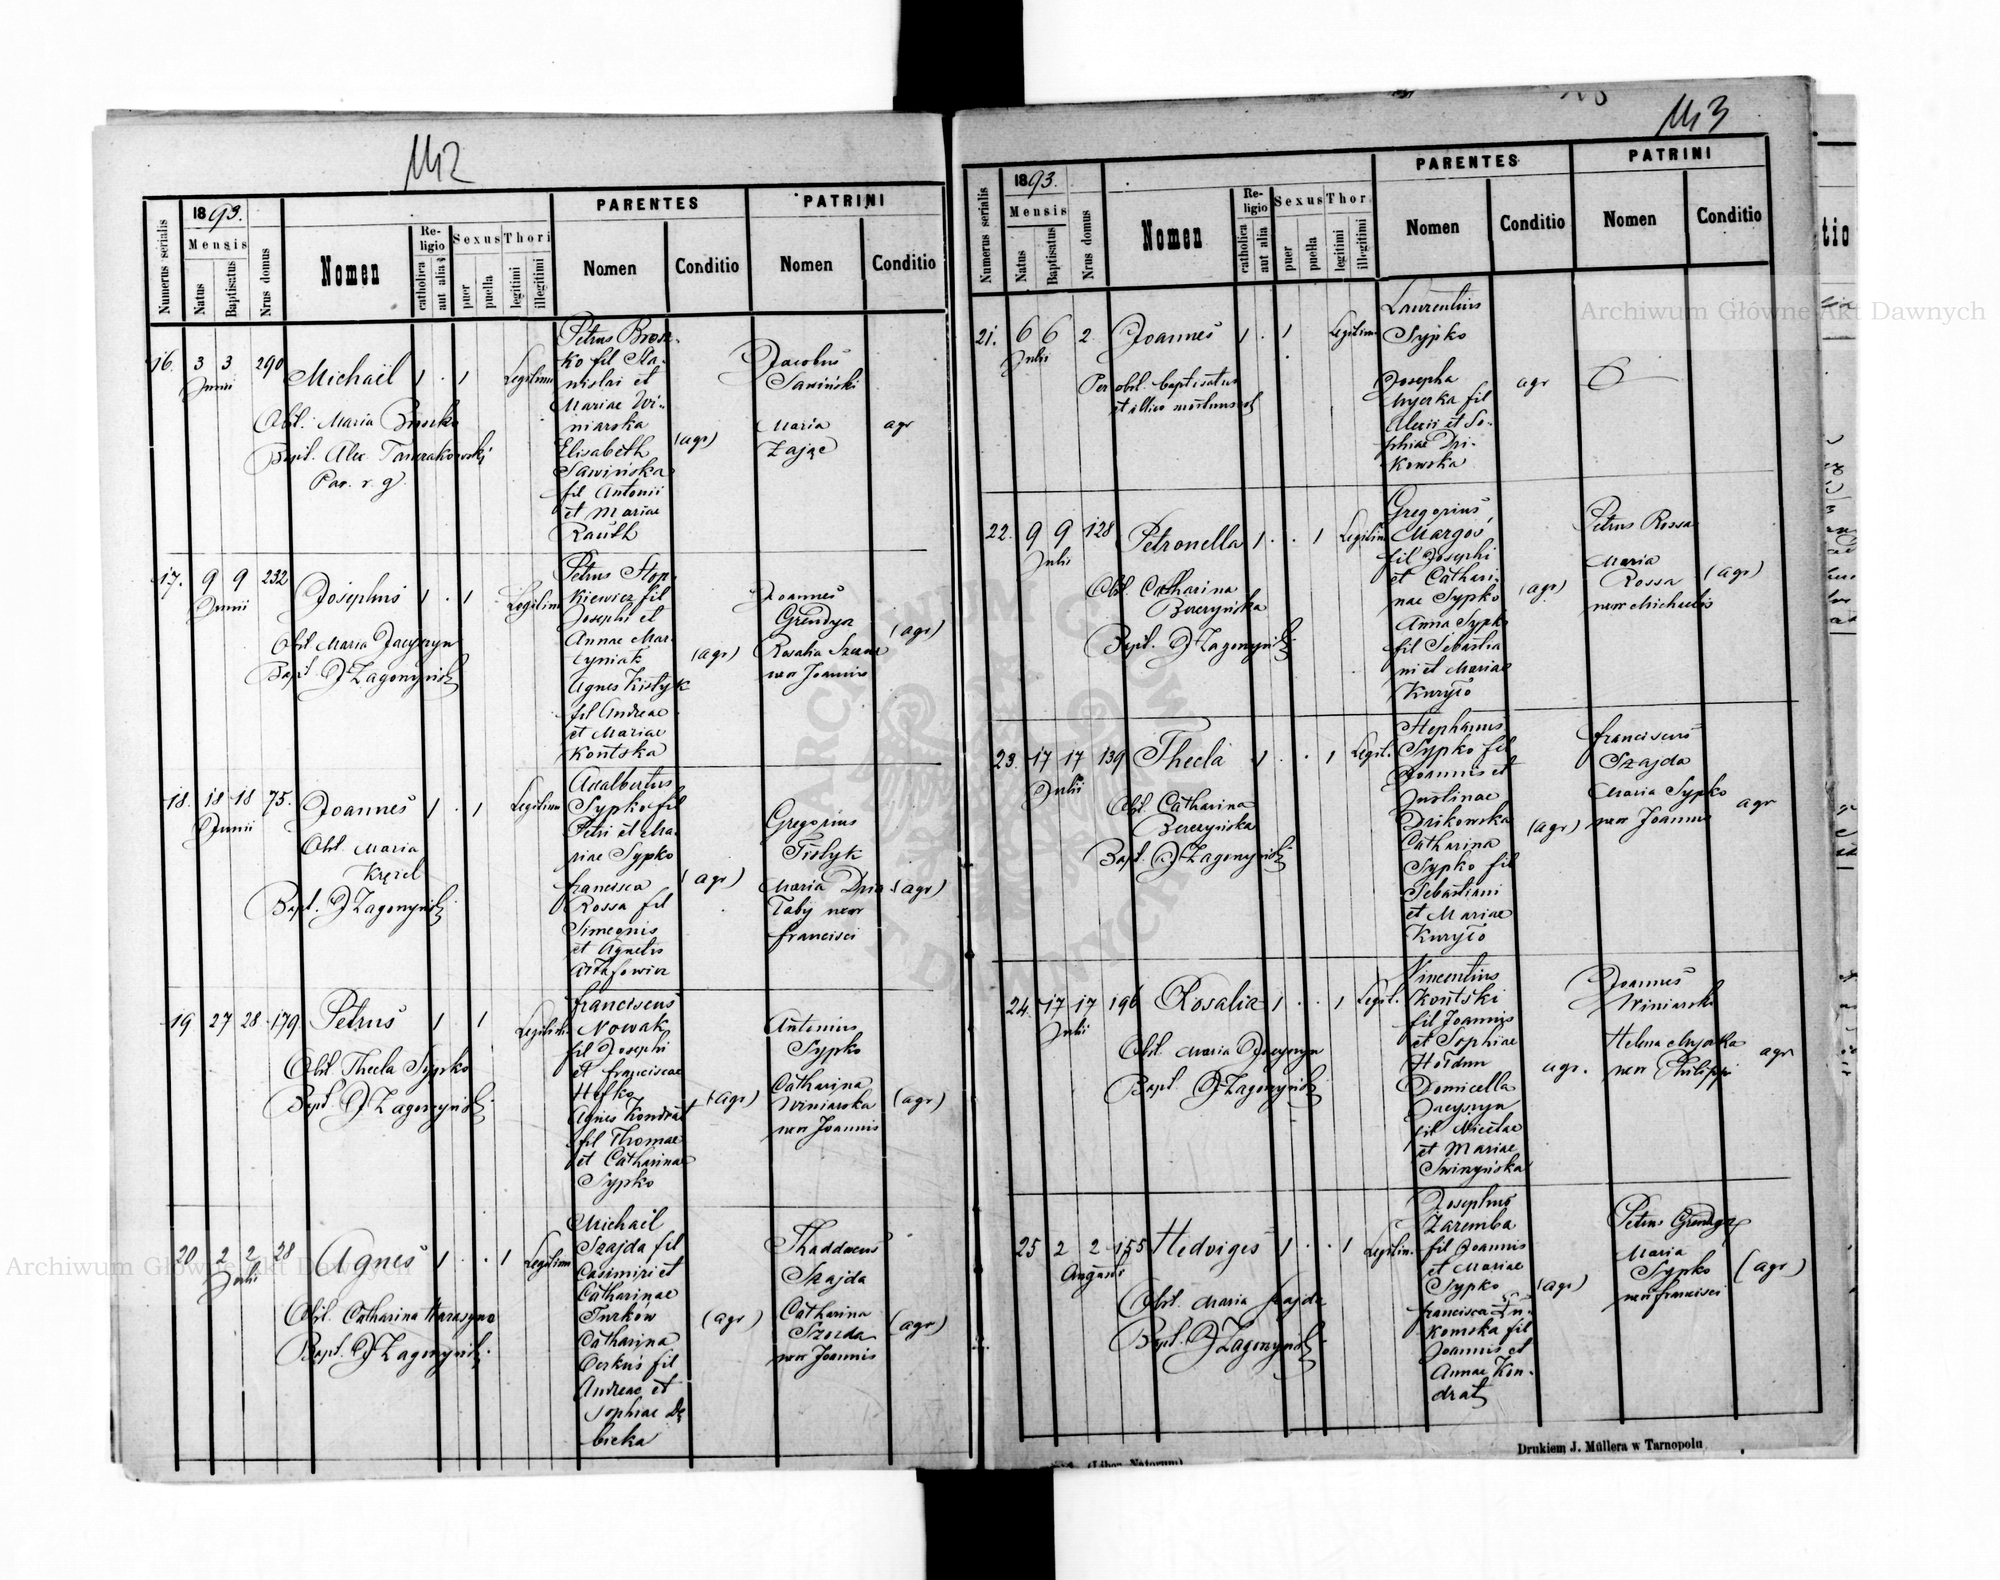 142
1893.
Numerus serialis
Mensis
Natus
Baptisatus
Nrus domus
Nomen
Religio
catholica
aut alia
Sexus
puer
puella
Thori
legitimi
illegitimi
PARENTES
Nomen
Conditio
PATRINI
Nomen
Conditio
16. 3 3 290
Junii
Michaël 1 . 1 Legitimi
Obst. Maria
Bapt. Alex.
Par. r. g.
Petrus Bros-
ko fil Sta-
nislai et
Mariae Wi-
niarska
Elisabeth
Sawińska
fil Antonii
et Mariae
Rauth
(agr)
Jacobus
Sawiński
Maria
Zając
agr
17. 9 9 232
Junii
Josephus 1 . 1 Legitimi
Obst Maria Jacyszyn
Bapt J Zagorzyński
Petrus Stop-
kiewicz fil
Josephi et
Annae Mar-
cyniak
Agnes Kisłyk
fil Andreae
et Mariae
Kontska
(agr)
Joannes
Grendyz
Rosalia
uxor Joannis
(agr)
18. 18 18 75.
Junii
Joannes 1 . 1 Legitimi
Obst Maria
Kręzel
Bapt. J Zagorzyński
Adalbertus
Sypko fil
Petri et Ma-
riae Sypko
francisca
Rossa fil
Simeonis
et Agnetis
(agr)
Gregorius
Tislyk
Maria
uxor
francisci
(agr)
19 27 28 179
Petrus 1 1 Legitimi
Obst Thecla Sypko
Bapt. J Zagorzyński
franciscus
Nowak
fil Josephi
et franciscae
Hefko
Agnes Kondrat
fil Thomae
et Catharinae
Sypko
(agr)
Antonius
Sypko
Catharina
Winiarska
uxor Joannis
(agr)
20 2 2 28
Julii
Agnes 1 . . 1 Legitimi
Obst. Catharina
Bapt. J Zagorzyński
Michaël
Szajda fil
Casimiri et
Catharinae
Turków
Catharina
fil
Andreae et
Sophiae Dę
bicka
(agr)
Thaddaeus
Szajda
Catharina
uxor Joannis
(agr)
143
1893.
Numerus serialis
Mensis
Natus
Baptisatus
Nrus domus
Nomen
Religio
catholica
aut alia
Sexus
puer
puella
Thori
legitimi
illegitimi
PARENTES
Nomen
Conditio
PATRINI
Nomen
Conditio
21. 6 6 2
Julii
Joannes 1 . 1 Legitimi
Per obst. baptisatus
et illico mortuus est
Laurentius
Sypko
Josepha
fil
Alexii et So-
phiae Dzi-
kowska
agr
22. 9 9 128
Julii
Petronella 1 . . 1 Legitimi
Obst. Catharina
Berezyńska
Bapt. J Zagorzyński
Gregorius
Margos
fil Josephi
et Cathari-
nae Sypko
Anna Sypko
fil Sebastia
ni et Mariae
Kuryło
(agr)
Petrus Rossa
Maria
Rossa
uxor Michaelis
(agr)
23. 17 17 139
Julii
Thecla 1 . . 1 Legit.
Obst. Catharina
Berezyńska
Bapt. J Zagorzyński
Stephanus
Sypko fil
Joannis et
Justinae
Dzikowska
Catharina
Sypko fil
Sebastiani
et Mariae
Kuryło
(agr)
franciscus
Szajda
Maria Sypko
uxor Joannis
agr
24. 17 17 196
Julii
Rosalia 1 . . 1 Legit.
Obst. Maria Jacyszyn
Bapt. J Zagorzyński
Vincentius
Kontski
fil Joannis
et Sophiae
Hołdun
Domicella
Jacyszyn
fil Nicetae
et Mariae
agr.
Joannes
Winiarski
Helena
uxor Philippi
agr
25 2 2 155
Augusti
Hedviges 1 . . 1 Legitim.
Obst. Maria Szajda
Bapt. J Zagorzyński
Josephus
Zaremba
fil Joannis
et Mariae
Sypko
francisca
fil
Joannis et
Annae Kon-
drat
(agr)
Petrus Grendyz
Maria
Sypko
uxor francisci
(agr)
Drukiem J. Müllera w Tarnopolu
(Liber Natorum)
Archiwum Główne Akt Dawnych
Archiwum Główne Akt Dawnych